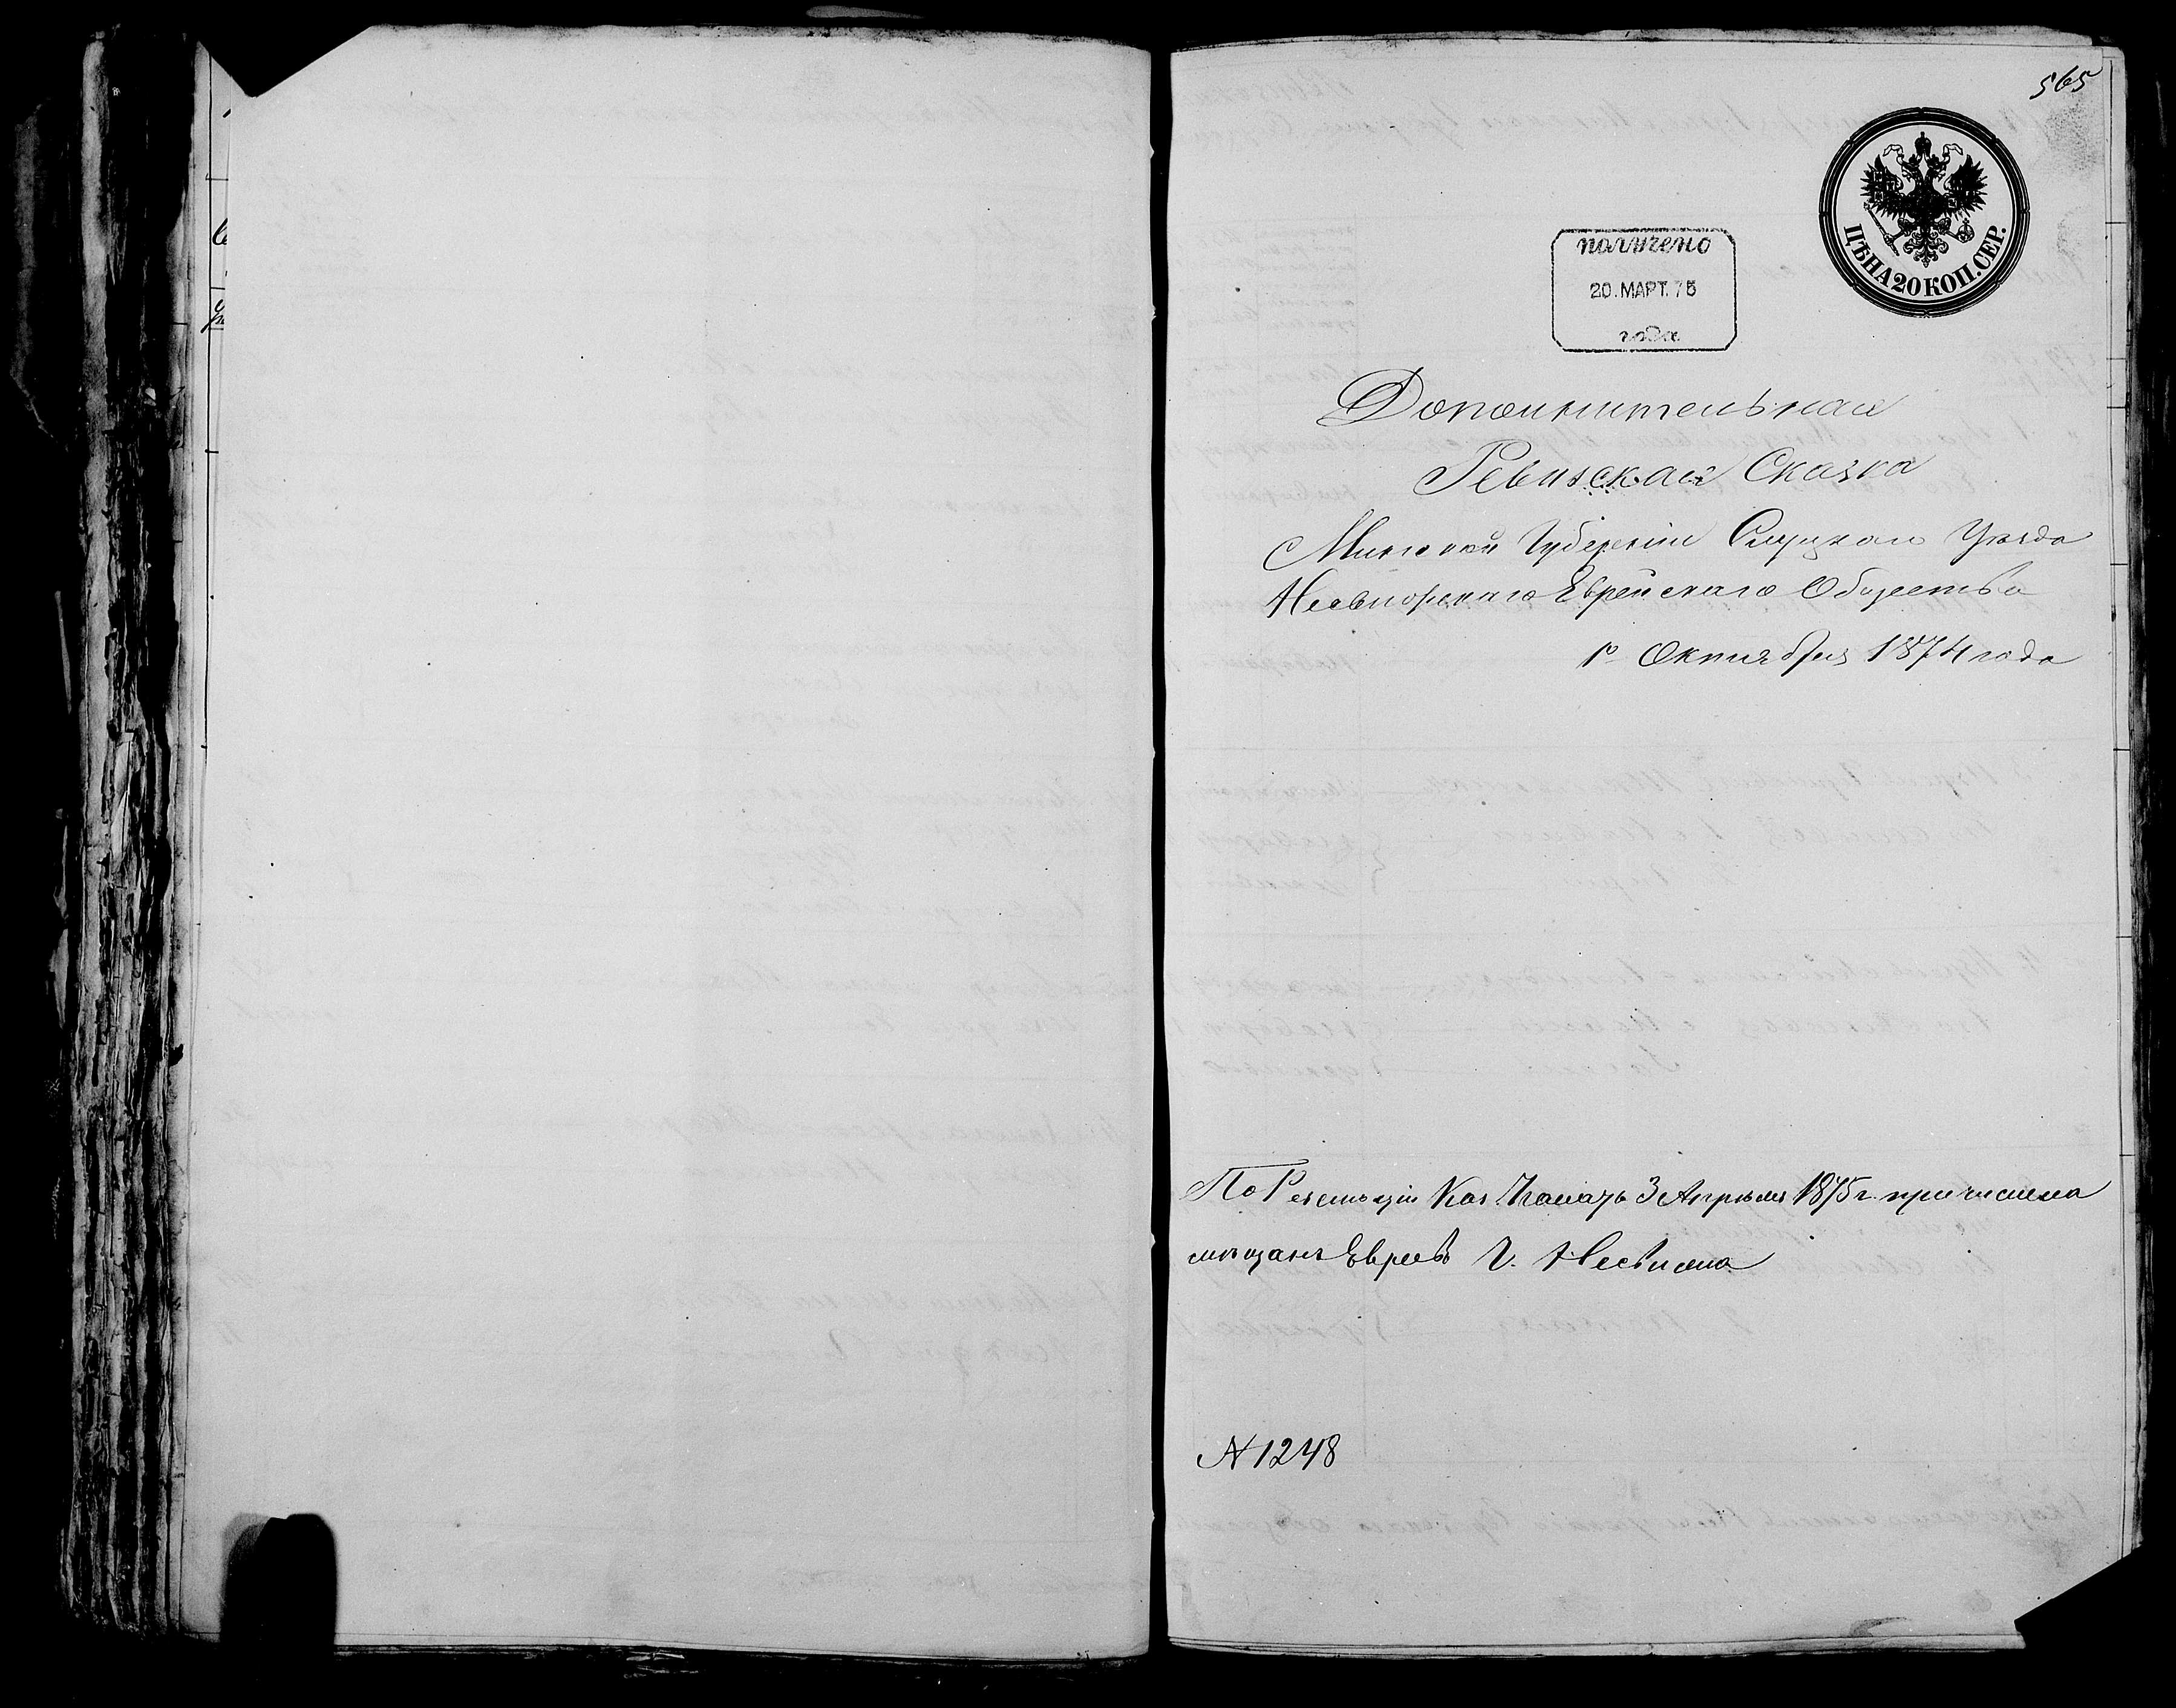 565
ЦѢНА 20 КОП. СЕР.
получено
20. МАРТ. 75
года
Дополнительная
Ревизская Сказка
Минской Губернiи Слуцкаго Уѣзда
Несвижскаго Еврейскаго Общества
1го Октября 1874 года
По Резолюцiи Каз. Палаты 3 Апрѣля 1875 г. причислена
мѣщанъ Евреевъ г. Несвижа
N 1248